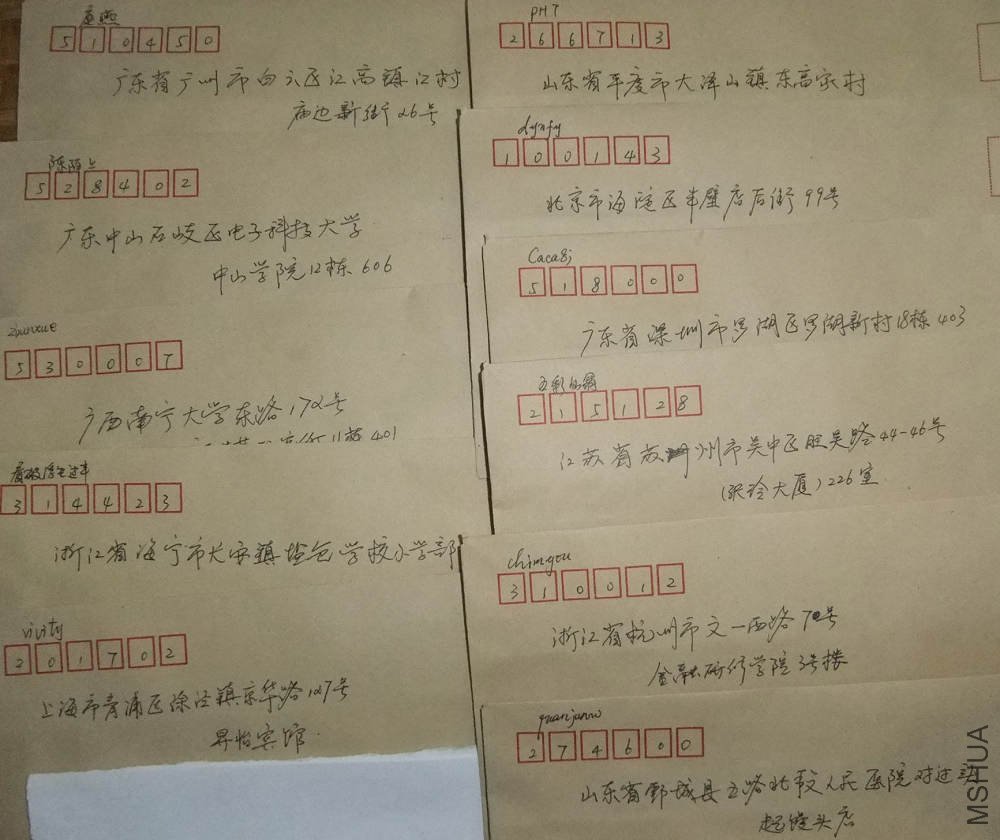 510450
广东省广州市白云区江高镇江村
庙边新街26号
陈陌上
528402
广东中山石岐区电子科技大学
中山学院12栋606
zounxue
530007
广西南宁大学东路172号
11栋401
314423
浙江省海宁市长安镇盐仓学校小学部
vivity
201702
上海市青浦区徐泾镇京华路127号
昇怡宾馆
PHT
266713
山东省平度市大泽山镇东高家村
dynfy
100143
北京市海淀区半壁店后街99号
Caca8j
518000
广东省深圳市罗湖区罗湖新村18栋403
215128
江苏省苏州市吴中区旺吴路44-46号
大厦)226室
chimgou
310012
浙江省杭州市文一西路70号
金融研修学院3号楼
quanjunw
274600
山东省鄄城县五路北段人民医院对过
起馒头店
MSHUA